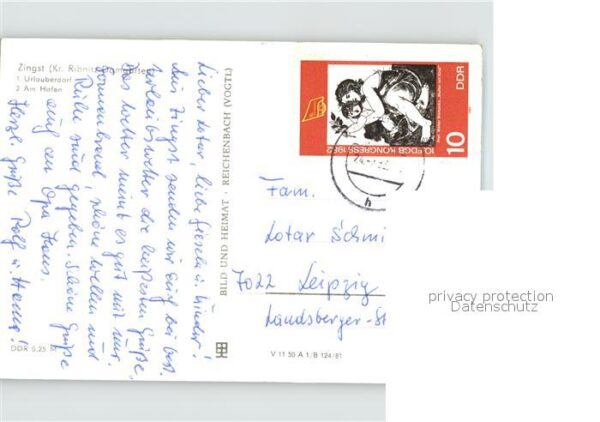 Zingst (Kr. Ribnitz-Damgarten)
1 Urlauberdorf
2 Am Hafen
Lieber Lotar, liebe Gisela u. Kinder!
Aus Zingst senden wir Euch bei best.
Urlaubswetter die heißesten Grüße,
Das Wetter meint es gut mit uns.
Sonnenbrand, schöne Wellen und
Ruhe sind gegeben. Schöne Grüße
auch an Opa Hans.
Herzl. Grüße Rolf u. Hanna!
DDR 0,25 M
BILD UND HEIMAT REICHENBACH (VOGTL)
V 11 50 A 1/B 124/81
10. FDGB KONGRESS 1982
DDR
10
Fam.
Lotar Schmi
7022 Leipzig
Landsberger-St
privacy protection
Datenschutz